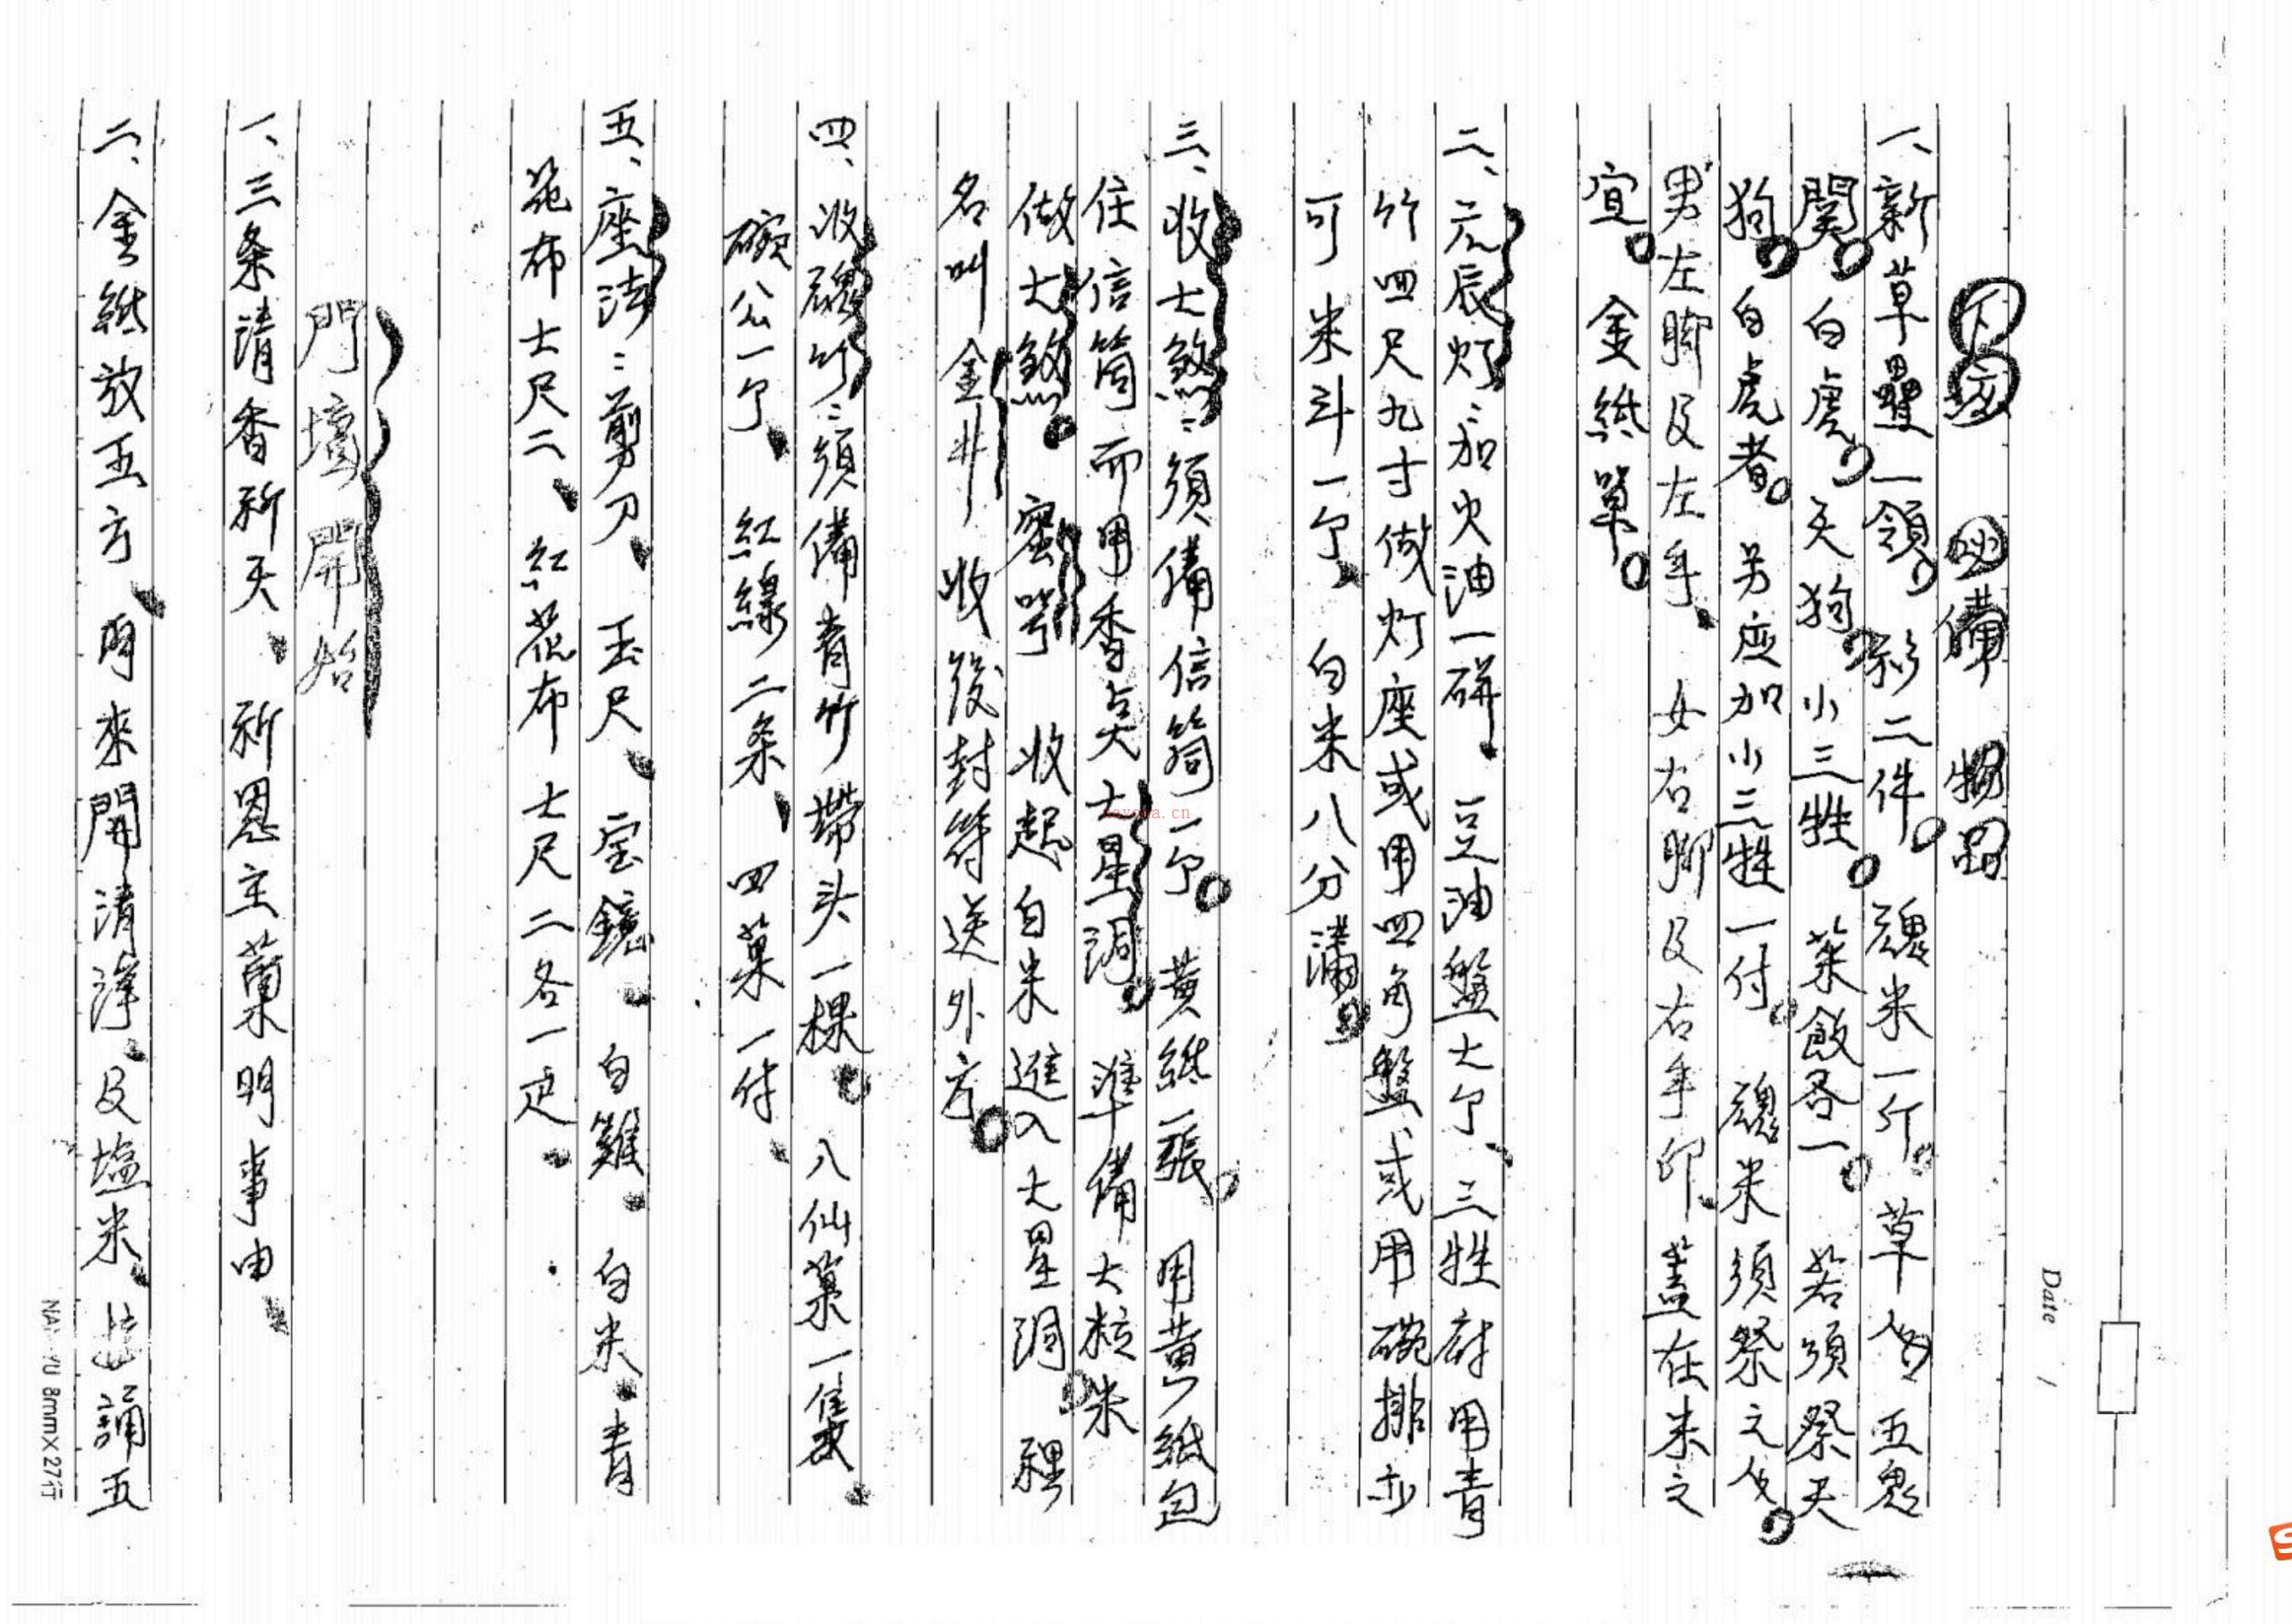 下壇 必備 物品
一、新草壘一領。衫二件。魂米一斤。草人 五鬼
関。白虎。天狗。小三牲。菜飯各一。若須祭天
狗。白虎者。另应加小三牲一付。魂米須祭之人。
男左脚及左手、女右脚及右手印、蓋在米之
宜。金紙單。
二、元辰灯:茄火油一研、豆油盤七个、三牲府用青
竹四尺九寸做灯座或用四角盤或用碗排亦
可 米斗一个、白米八分滿。
三、收七煞:須備信筒一个。黄紙一張。用黄紙包
住信筒而用香奌七星洞。準備大粒米
做七煞。蜜咢 收起白米進入七星洞。裡
名叫金井 收後封符送外方。
四、收魂竹:須備青竹帶头一棵。八仙菓一隻、
碗公一个、紅線二条、四菓一付、
五、座法:剪刀、玉尺、宝鏡、白雞、白米、青
花布七尺二、紅花布七尺二各一疋、
門壇開始
一、三条清香祈天、祈恩主稟明事由、
二、金紙放五方、用來開清淨、及塩米、誦五
Date /
NAN YU 8mm×27行